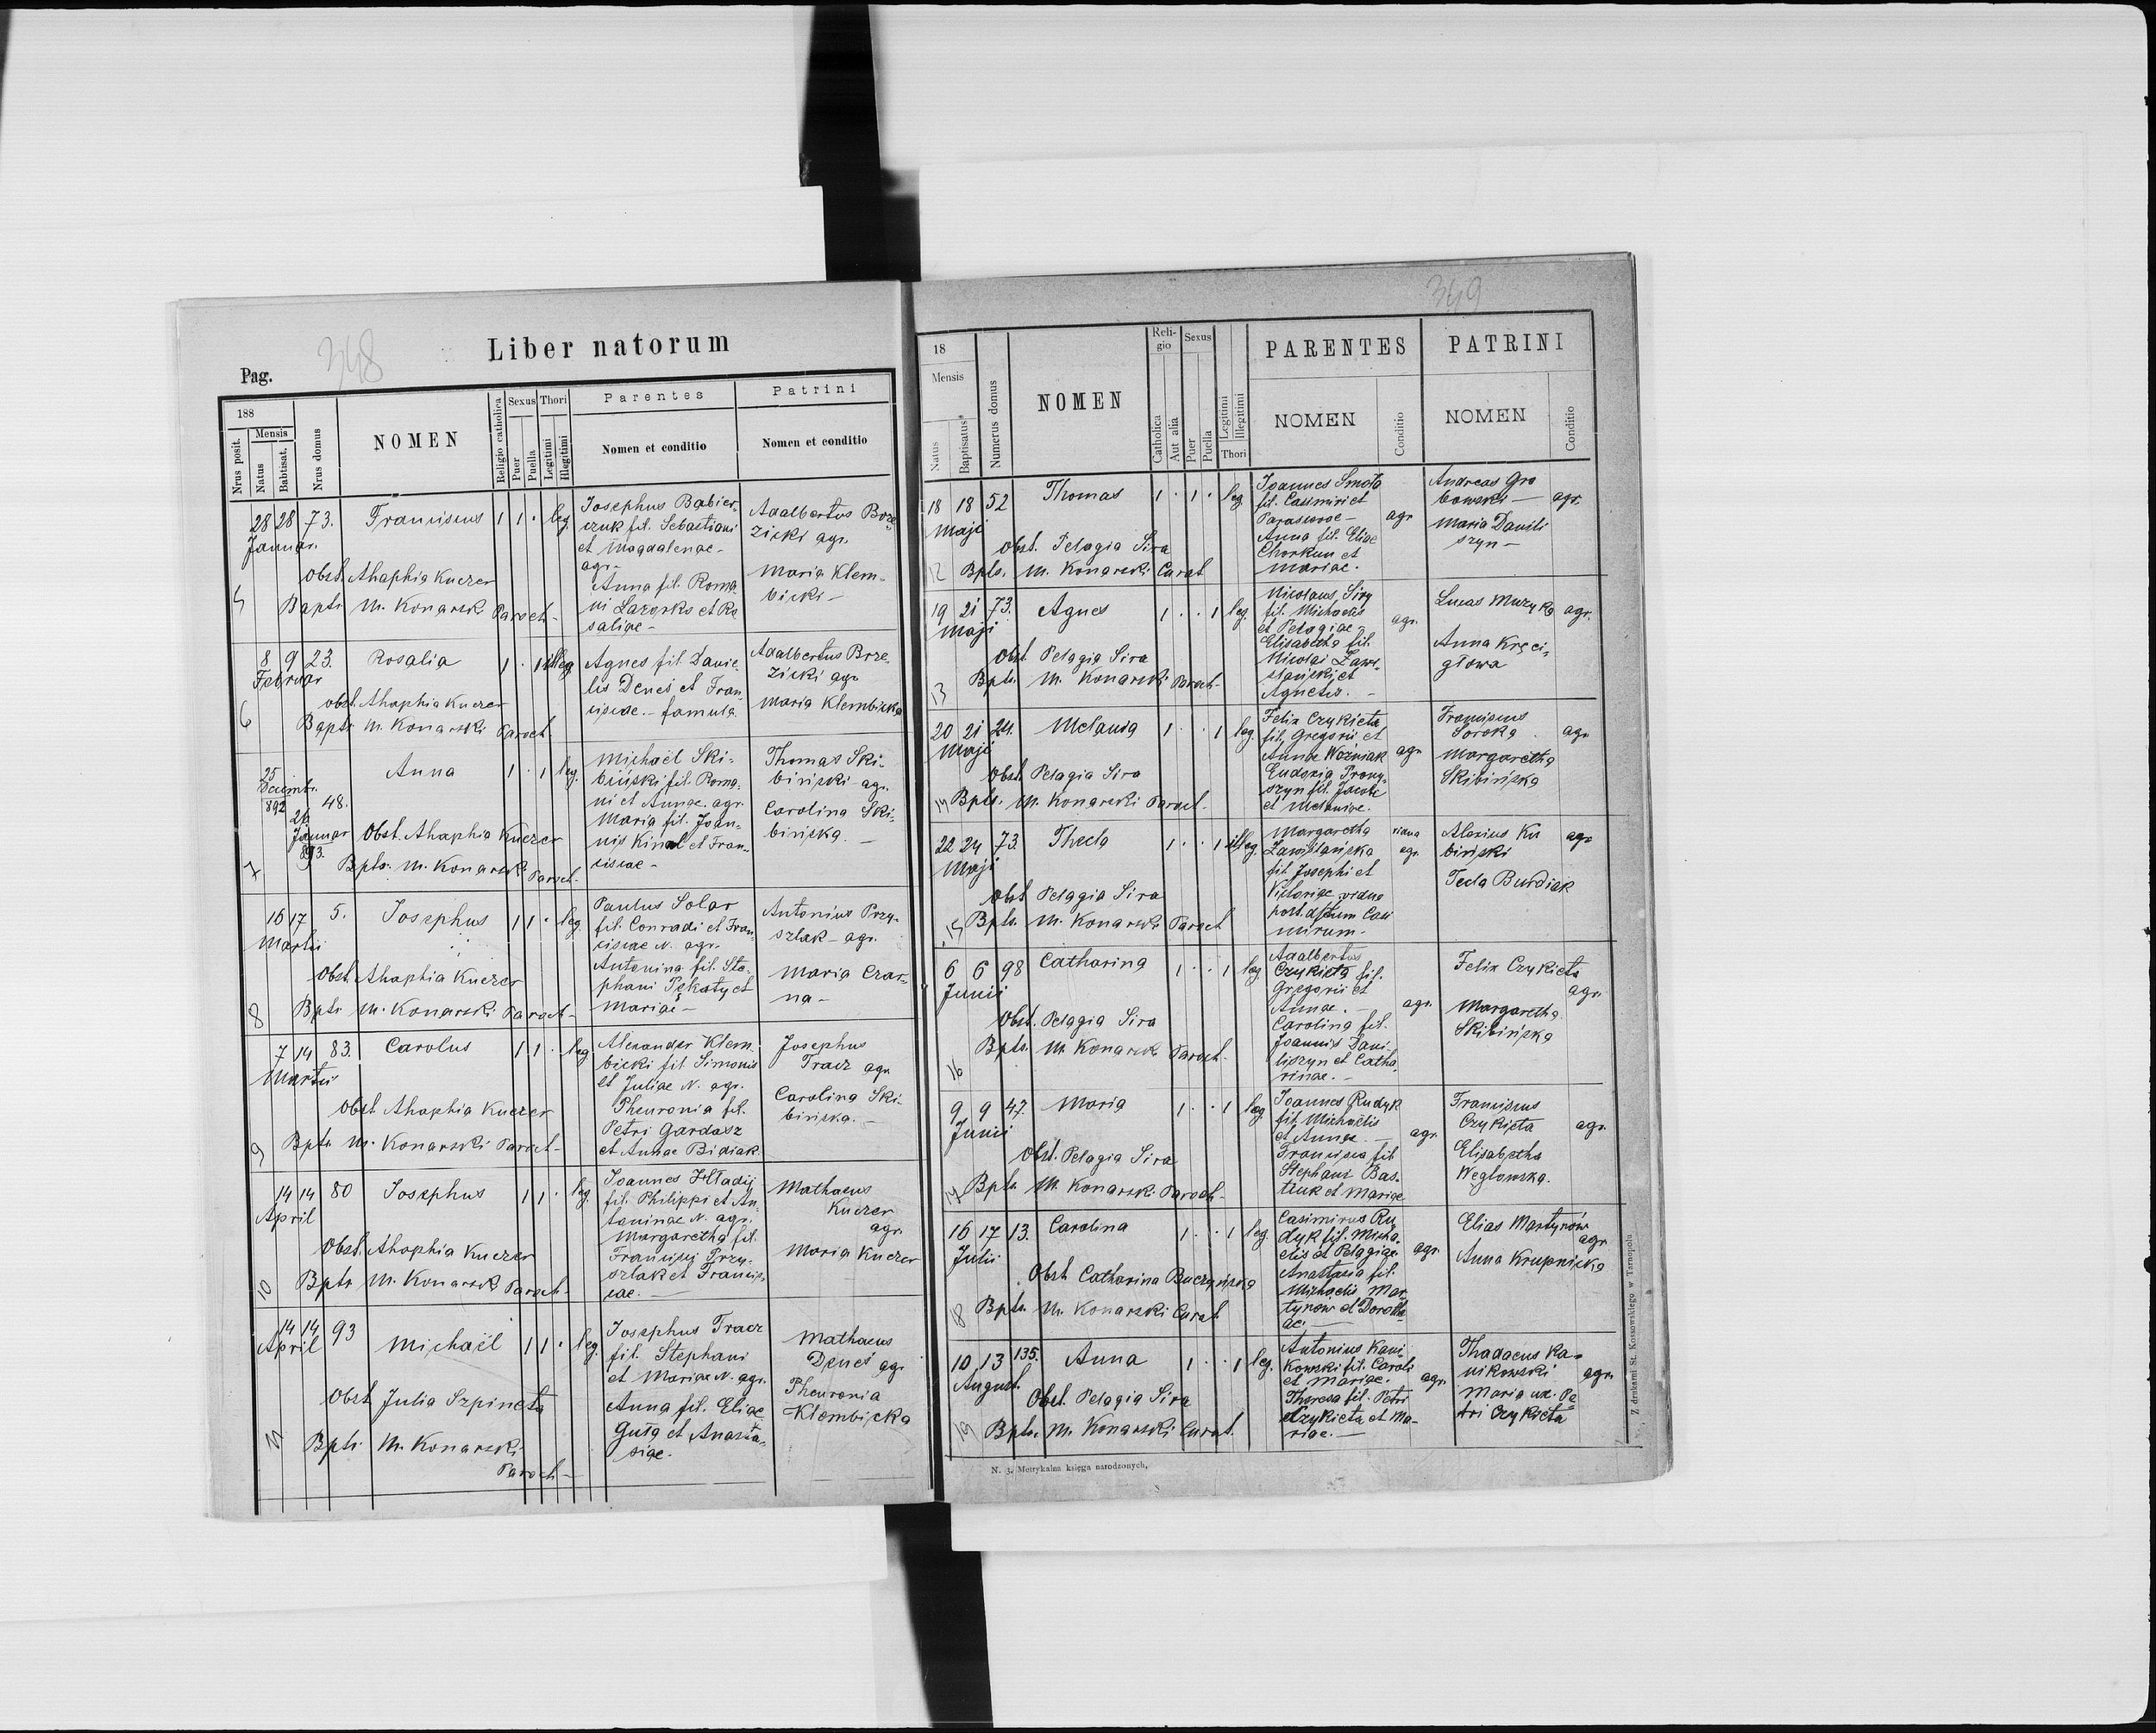 348
Liber natorum
Pag.
188
Nrus posit.
Mensis
Natus
Babtisat.
Nrus domus
NOMEN
Religio catholica
Sexus
Puer
Puella
Thori
Legitimi
Illegitimi
Parentes
Nomen et conditio
Patrini
Nomen et conditio
5
28 28 73. Franciscus 1 1 · leg.
Januar.
Obst. Ahaphia Kuczer
Bapts M. Konarski Paroch-
Josephus Babier-
czuk fil. Sebastiani
et Magdalenae-
agr-
Anna fil. Roma
ni Lazorko et Ro
saliae-
Adalbertus Brze
zicki agr.
Maria Klem-
bicki-
6
8 9 23. Rosalia 1 · 1 illeg
Februar
obst. Ahaphia Kuczer
Bapts M. Konarski Paroch
Agnes fil Danie
lis Denes et Fran
ciscae.- famula.
Adalbertus Brze-
zicki agr
Maria Klembicka
7
25 Decembr. 892
26 Januar 893.
48.
Anna 1 · 1 leg.
Obst. Ahaphia Kuczer
Bpts. M. Konarski Paroch-
Michaël Ski-
biński fil. Roma-
ni et Annae. agr.
Maria fil. Joan-
nis Kinal et Fran-
ciscae-
Thomas Ski-
biński- agr.
Carolina Ski-
bińska. -
8
16 17 5. Josephus 1 1 · leg.
Martii
Obst. Ahaphia Kuczer
Bpts M. Konarski Paroch-
Paulus Solar
fil. Conradi et Fran-
ciscae N. agr.
Antonina fil. Ste-
phani Pękaty et
Mariae-
Antonius Przy-
szlak- agr.
Maria Czar-
na-
9
7 14 83. Carolus 1 1 · leg
Martii
Obst Ahaphia Kuczer
Bpts M. Konarski Paroch-
Alexander Klem-
bicki fil Simonis
et Juliae N. agr.
Pheuronia fil.
Petri Gardasz
et Annae Bidiak.
Josephus
Tracz agr
Carolina Ski-
bińska. -
10
14 14 80 Josephus 1 1 · leg.
April
Obst. Ahaphia Kuczer
Bpts M. Konarski Paroch-
Joannes Hładij
fil. Philippi et An-
toninae N. agr.
Margaretha fil.
Francisci Przy-
szlak et Francis
cae.
Mathaeus
Kuczer
agr.
Maria Kuczer
11
14 14 93 Michaël 1 1 · leg.
April
Obst Julia Szpineta
Bpts M. Konarski
Paroch-
Josephus Tracz
fil. Stephani
et Mariae N. agr.
Anna fil. Eliae
et Anasta-
siae.
Mathaeus
Denes agr
Pheuronia
Klembicka
349
18
Mensis
Natus
Baptisatus
Numerus domus
NOMEN
Religio
Catholica
Aut alia
Sexus
Puer
Puella
Legitimi
Illegitimi
Thori
PARENTES
NOMEN
Conditio
PATRINI
NOMEN
Conditio
12
18 18 52 Thomas 1 · 1 · leg
Maji
Obst. Pelagia Sira
Bpts. M. Konarski Curat
Joannes Smoła
fil. Casimiri et
Parascevae-
Anna fil. Eliae
Chorkun et
Mariae.
agr
Andreas Gra
bowski-
agr.
Maria Danili
szyn-
13
19 21 73. Agnes 1 · · 1 leg.
Maji
Obst Pelagia Sira
Bpts. M. Konarski Paroch-
Nicolaus Siry
fil. Michaelis
et Pelagiae-
Elisabetha fil.
Nicolai Zaws-
et
Agnetis. -
agr.
Lucas Muzyka agr.
Anna Kręci-
głowa
14
20 21 24. Melania 1 · · 1 leg.
Maji
Obst Pelagia Sira
Bpts. M. Konarski Paroch.
Felix Czykieta
fil. Gregorii et
Annae Woźniak
Eudoxia Prony-
szyn fil. Jacobi
et Melaniae.
agr
Franciscus
Soroka agr
Margaretha
Skibińska
15
22 24 73. Thecla 1 · · 1 illeg.
Maji
Obst Pelagia Sira
Bpts. M. Konarski Paroch
Margaretha
fil Josephi et
Victoriae vidua
post. Casi
mirum.
vidua
agr.
Alexius Ku
biński agr
Tecla Burdiak
16
6 6 98 Catharina 1 · · 1 leg
Junii
Obst. Pelagia Sira
Bpts. M. Konarski Paroch.
Adalbertus
Czykieta fil.
Gregorii et
Annae. -
Carolina fil.
Joannis Dani-
liszyn et Catha-
rinae. -
agr.
Felix Czykieta
agr.
Margaretha
Skibińska
17
9 9 47. Maria 1 · · 1 leg
Junii
Obst. Pelagia Sira
Bpts. M. Konarski Paroch-
Joannes Rudyk
fil. Michaëlis
et Annae. -
Francisca fil
Stephani Bas-
tiuk et Mariae
agr.
Franciscus
Czykieta agr.
Elisabetha
Weglowska.
18
16 17 13. Carolina 1 · · 1 leg.
Julii
Obst Catharina Buczyńska
Bpts. M. Konarski Curat
Casimirus Ru
dyk fil. Micha-
elis et Pelagiae
Anastasia fil.
Michaelis Mar-
tynow et Doroth-
ae.
agr.
Elias Martynów
agr
Anna Krupnicka
19
10 13 135. Anna 1 · · 1 leg.
August.
Obst. Pelagia Sira
Bpts. M. Konarski Curat.
Antonius Kani-
kowski fil. Caroli
et Mariae.
Theresa fil. Petri
Czykieta et Ma-
riae. -
agr.
Thadaeus Ka-
nikowski agr.
Maria ux. Pe
tri Czykieta
N. 3. Metrykalna księga narodzonych.
Z drukarni St. Kossowskiego w Tarnopolu